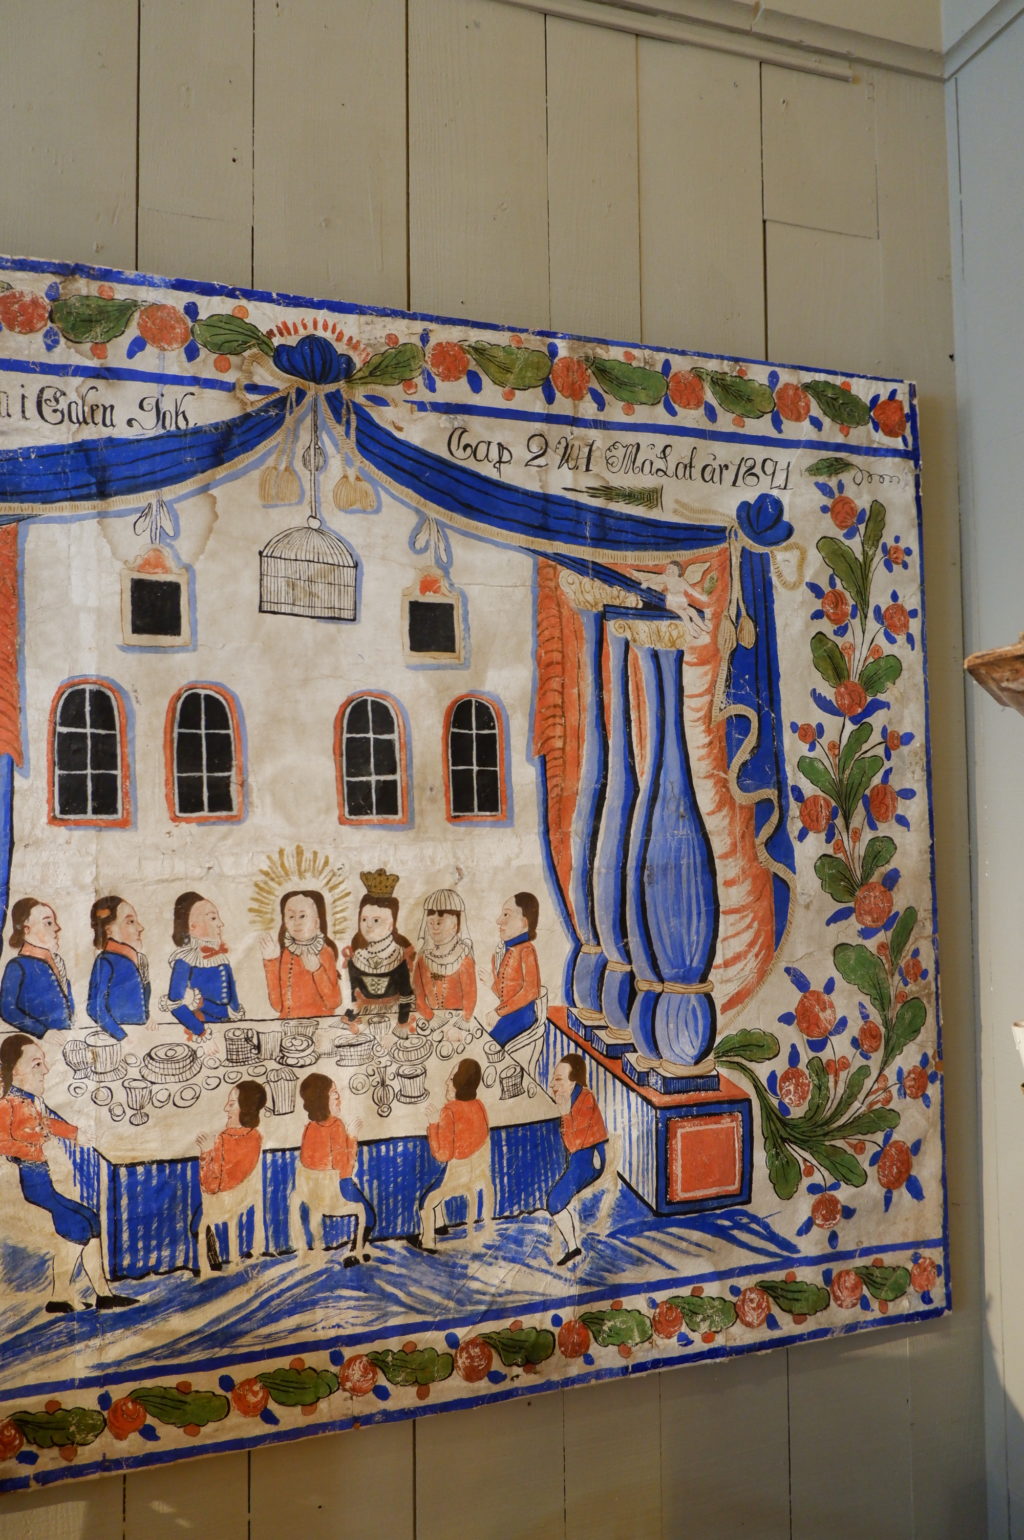 i Galen Joh.
Cap 2 W1 MåLat år 1821